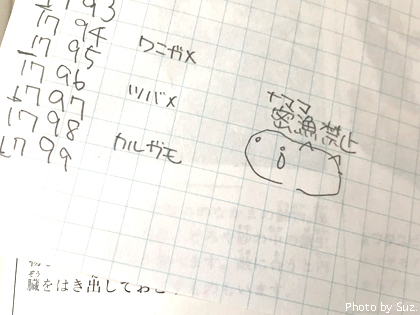 1793
1794
1795
1796
1797
1798
1799
ワニガメ
ツバメ
カルガモ
ナマコ
密漁禁止
ぞう
臓をはき出して
Photo by Suz